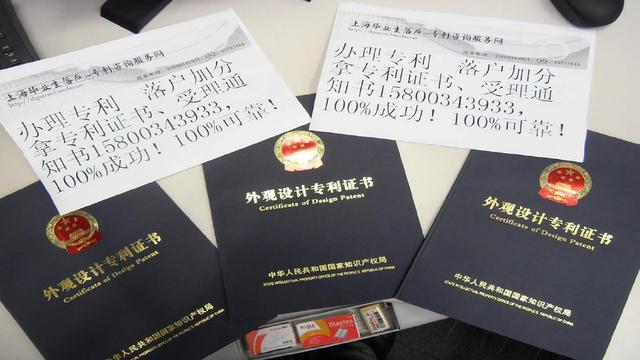 上海毕业生落户—专利咨询服务网
办理专利 落户加分
拿专利证书、受理通
知书15800343933,
100%成功！100%可靠！
上海毕业生落户—专利咨询服务网
办理专利 落户加分
拿专利证书、受理通
知书15800343933,
100%成功！100%可靠！
外观设计专利证书
Certificate of Design Patent
中华人民共和国国家知识产权局
STATE INTELLECTUAL PROPERTY OFFICE OF THE PEOPLE'S REPUBLIC OF CHINA
外观设计专利证书
Certificate of Design Patent
中华人民共和国国家知识产权局
STATE INTELLECTUAL PROPERTY OFFICE OF THE PEOPLE'S REPUBLIC OF CHINA
外观设计专利证书
Certificate of Design Patent
中华人民共和国国家知识产权局
STATE INTELLECTUAL PROPERTY OFFICE OF THE PEOPLE'S REPUBLIC OF CHINA
Staples